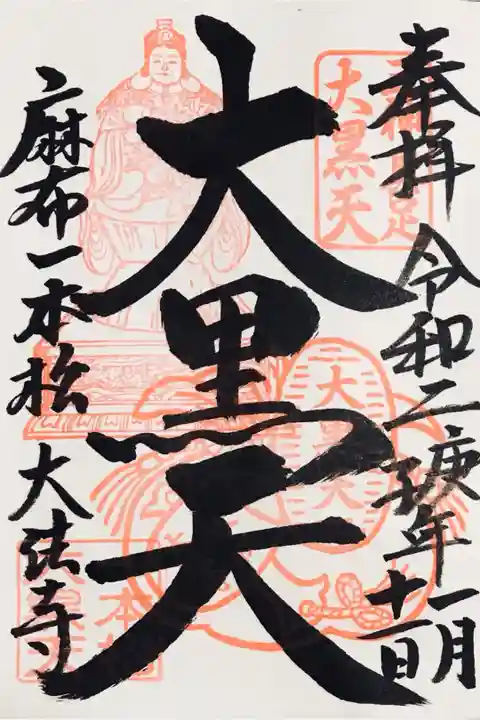 奉拝
令和二庚子年十一月
十一日
大黒天
麻布一本松
大法寺
大黒天
大黒天